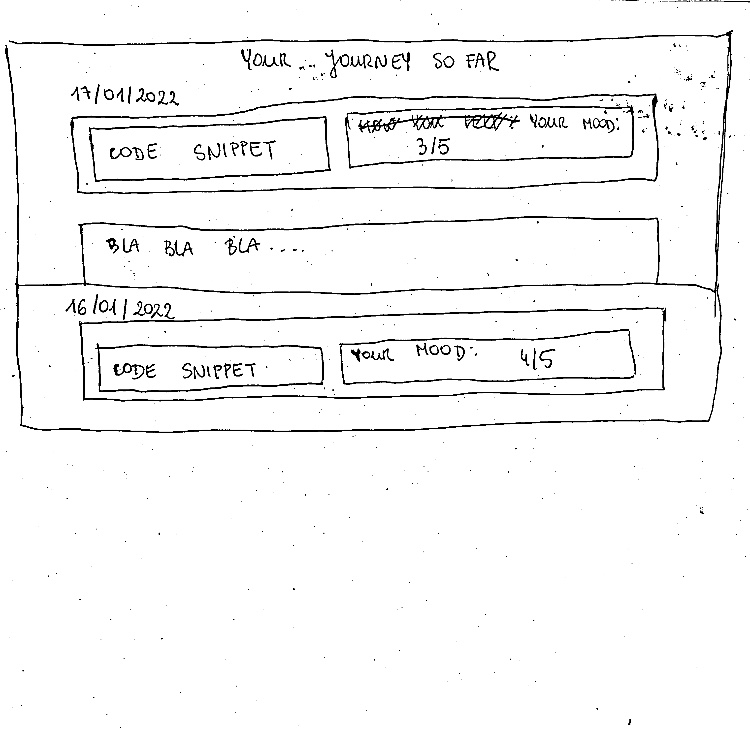 YOUR ... JOURNEY SO FAR
17/01/2022
CODE SNIPPET
YOUR MOOD:
3/5
BLA BLA BLA ....
16/01/2022
CODE SNIPPET
YOUR MOOD: 4/5